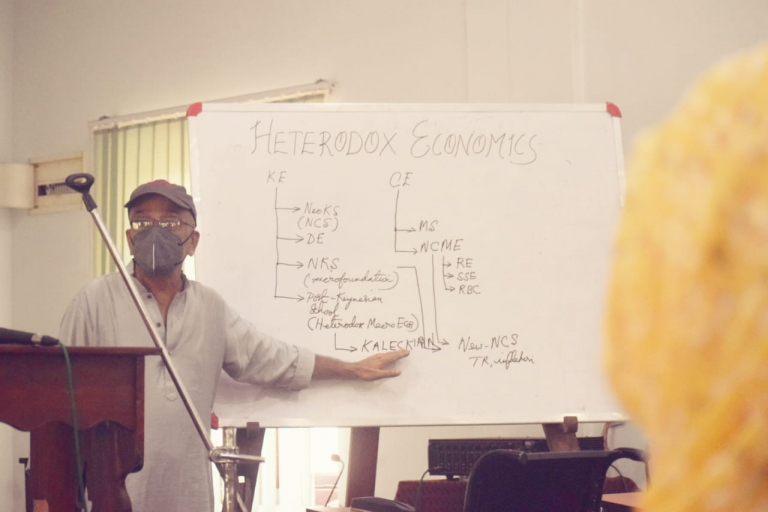 HETERODOX ECONOMICS
KE
NeoKS
(NCS)
DE
NKS
(microfoundation)
Post-Keynesian
School
(Heterodox Macro Eco)
KALECKIAN
CE
MS
NCME
RE
SSE
RBC
New-NCS
TR, inflation